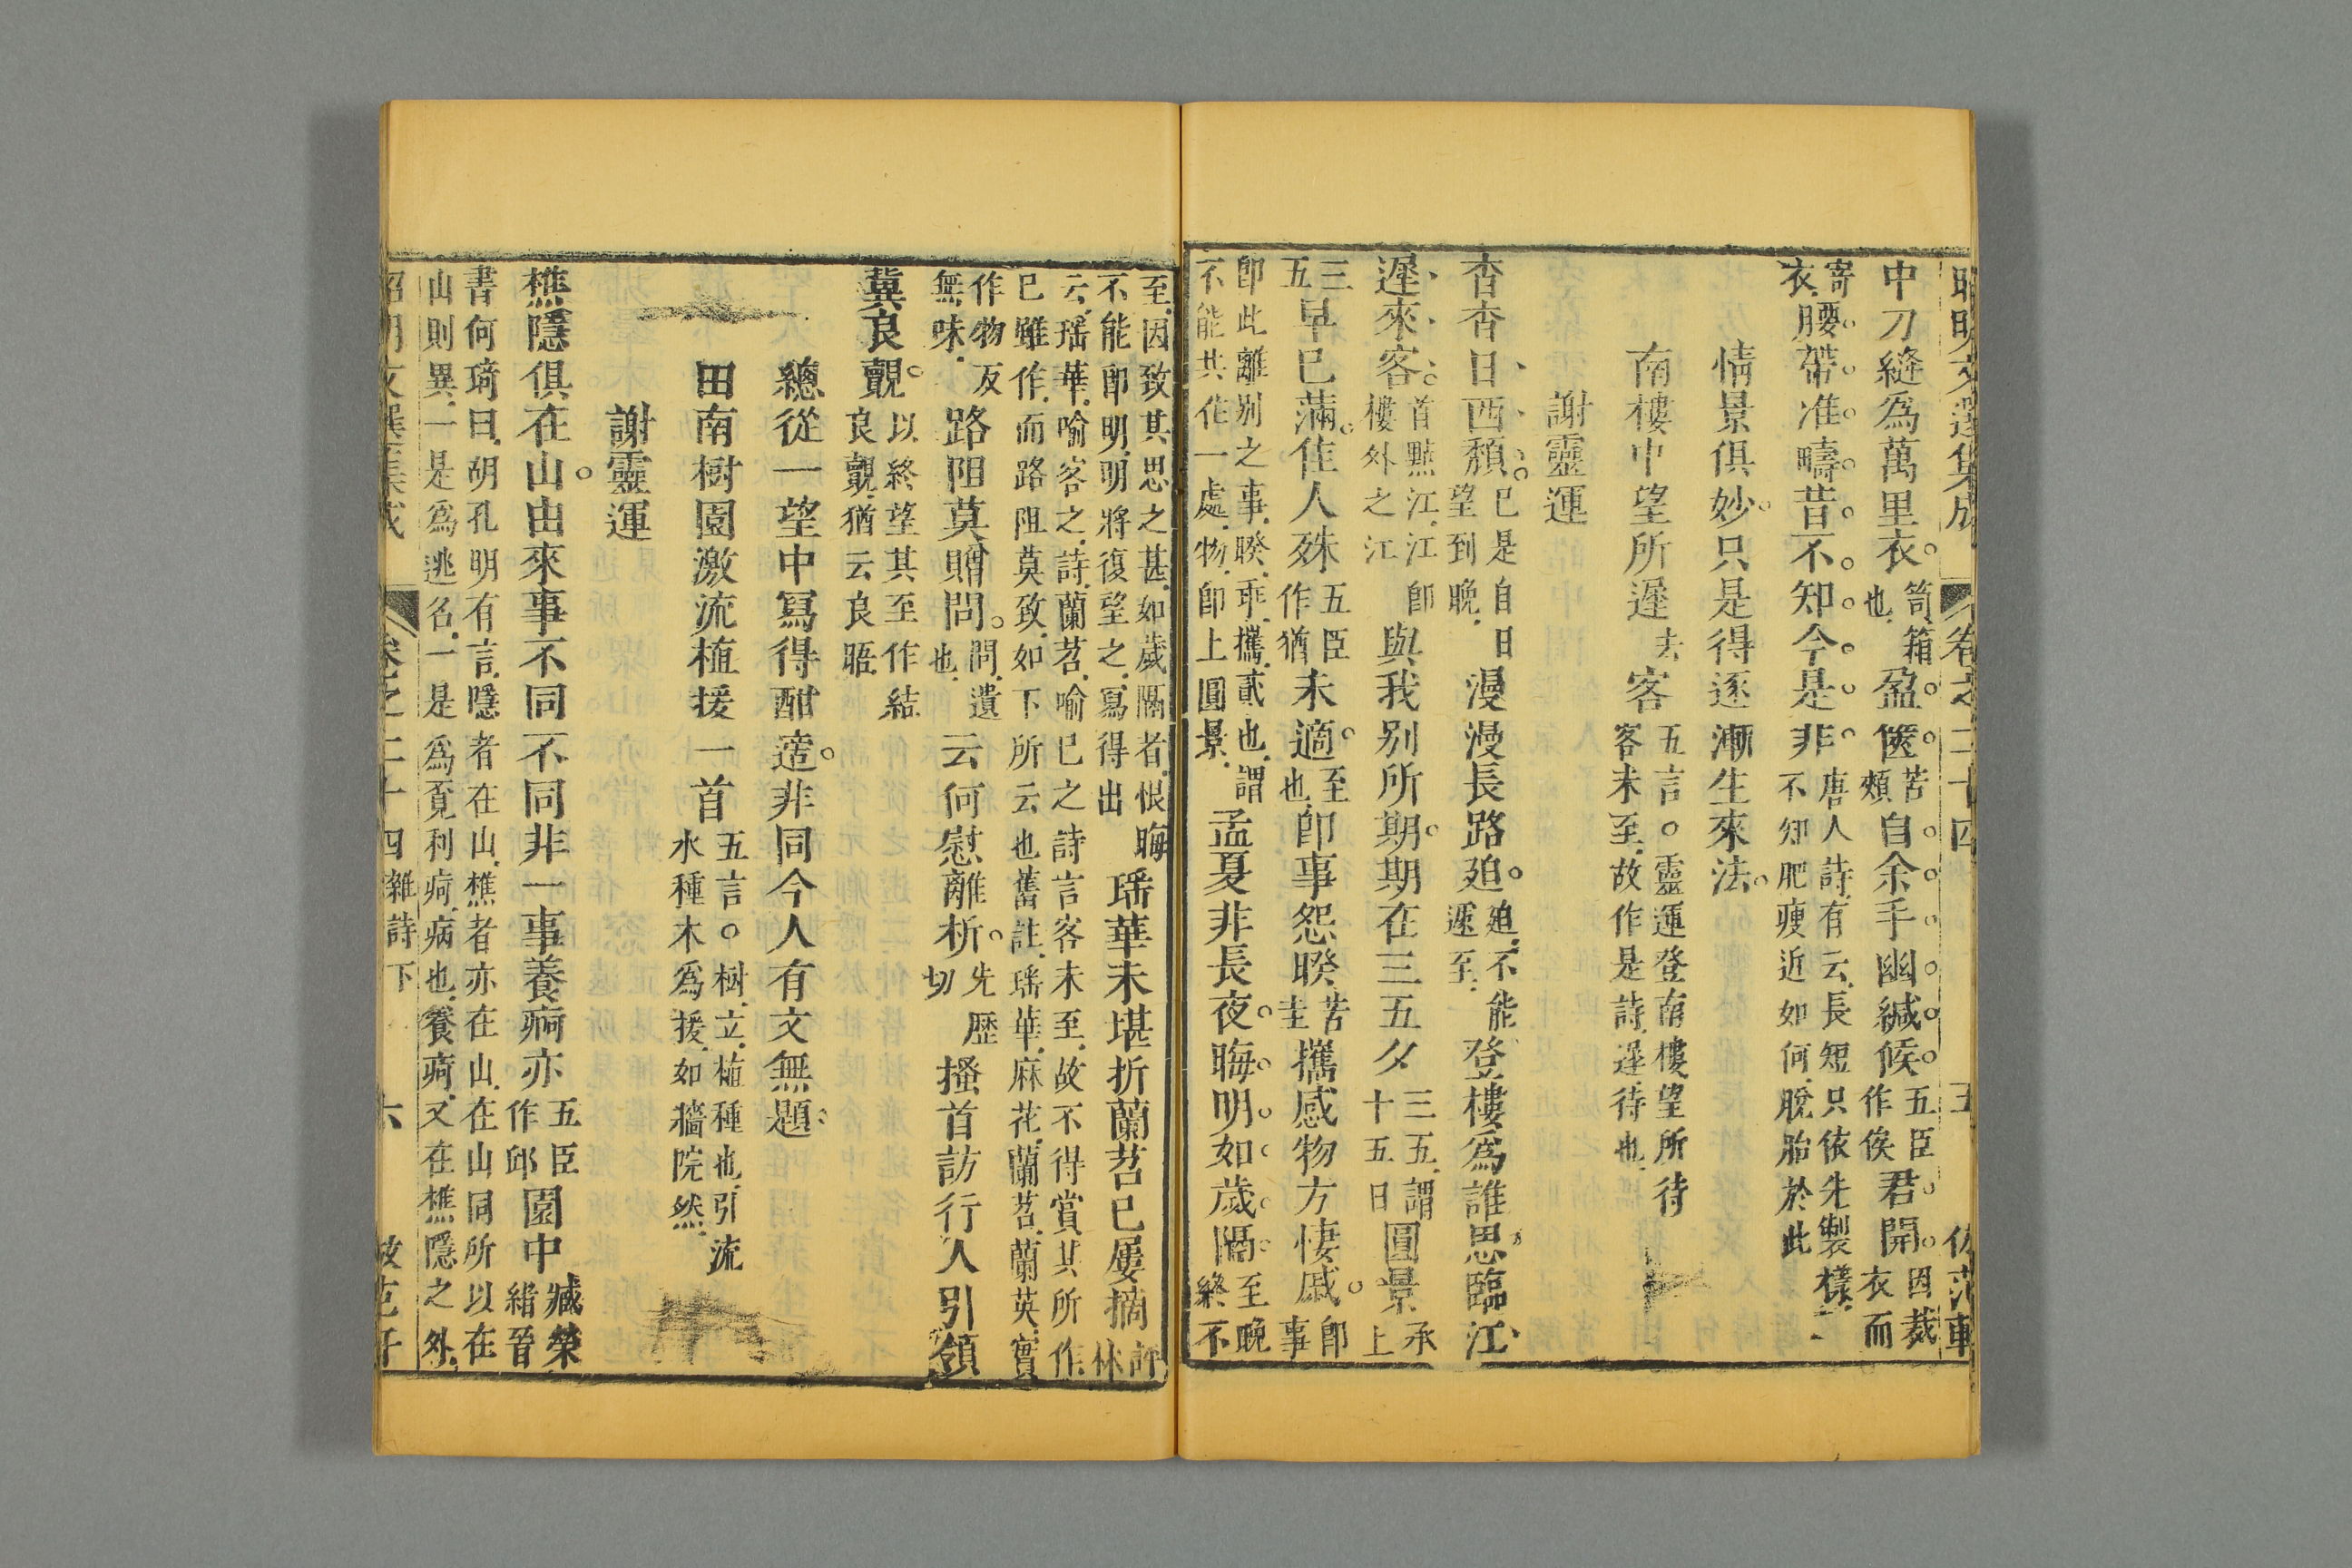 昭明文選集成 卷之二十四 五 仿范軒
中刀縫爲萬里衣笥箱也盈篋苦頰自余手幽緘候五臣作俟君開因裁衣而
寄衣腰帶准疇昔不知今是非唐人詩有云長短只依先製樣不知肥瘦近如何脫胎於此
情景俱妙只是得逐漸生來法
南樓中望所遲去客五言○靈運登南樓望所待客未至故作是詩遲待也
謝靈運
杳杳日西頹已是自日望到晚漫漫長路迫迫不能遽至登樓爲誰思臨江
遲來客首點江江卽樓外之江與我別所期期在三五夕三五謂十五日圓景承上
三五早已滿佳人殊五臣作猶未適至也卽事怨睽苦圭攜感物方悽戚卽事
卽此離別之事睽乖攜貳也謂不能共作一處物卽上圓景孟夏非長夜晦明如歲隔至晚終不
至因致其思之甚如歲隔者恨晦不能卽明明將復望之寫得出瑶華未堪折蘭苕已屢摘許林
云瑶華喻客之詩蘭苕喻已之詩言客未至故不得賞其所作已雖作而路阻莫致如下所云也舊註瑶華麻花蘭苕蘭英實
作物反無味路阻莫贈問問遺也云何慰離析先歷切搔首訪行人引領
冀良覿以終望其至作結良覿猶云良晤
總從一望中寫得酣適非同今人有文無題
田南樹園激流植援一首五言○樹立植種也引流水種木爲援如牆院然
謝靈運
樵隱俱在山由來事不同不同非一事養痾亦五臣作邱園中臧榮緒晉
書何琦曰胡孔明有言隱者在山樵者亦在山在山同所以在山則異一是爲逃名一是爲覓利痾病也養痾又在樵隱之外
昭明文選集成 卷之二十四 雜詩下 六